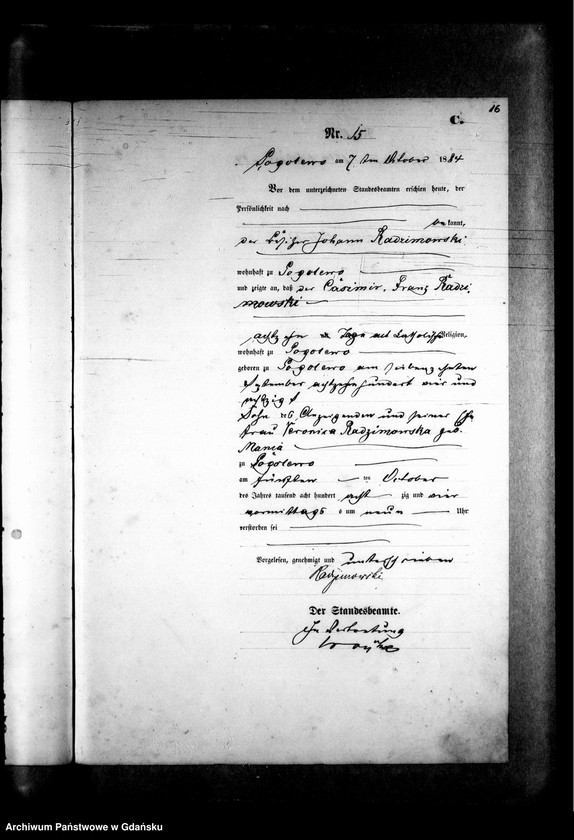 16
C.
Nr. 15
Pogolewo am 7 ten October 1884
Vor dem unterzeichneten Standesbeamten erschien heute, der
Persönlichkeit nach
bekannt,
der Besitzer Johann Radzimowski
wohnhaft zu Pogolewo
und zeigte an, daß der Casimir, Franz Radzi
mowski
achtzehn Tage alt katholischer Religion,
wohnhaft zu Pogolewo
geboren zu Pogolewo am siebenzehnten
September achtzehnhundert vier und
achtzig
Sohn des Anzeigenden und seiner Ehe
frau Veronica Radzimowska geb.
Mania
zu Pogolewo
am fünften ten October
des Jahres tausend acht hundert acht zig und vier
vormittags um neun Uhr
verstorben sei
Vorgelesen, genehmigt und unterschrieben
Radzimowski
Der Standesbeamte.
In Vertretung
Archiwum Państwowe w Gdańsku